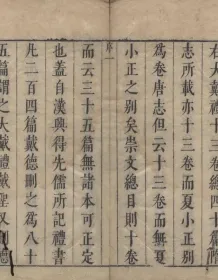 右大戴禮十三卷
志所載亦十三卷而夏小正別
爲卷唐志但云十三卷而無夏
小正之別矣崇文總目則十卷
而云三十五篇無諸本可正定
也蓋自漢興得先儒所記禮書
凡二百四篇戴德刪之爲八十
五篇謂之大戴禮戴聖又刪德
序
二